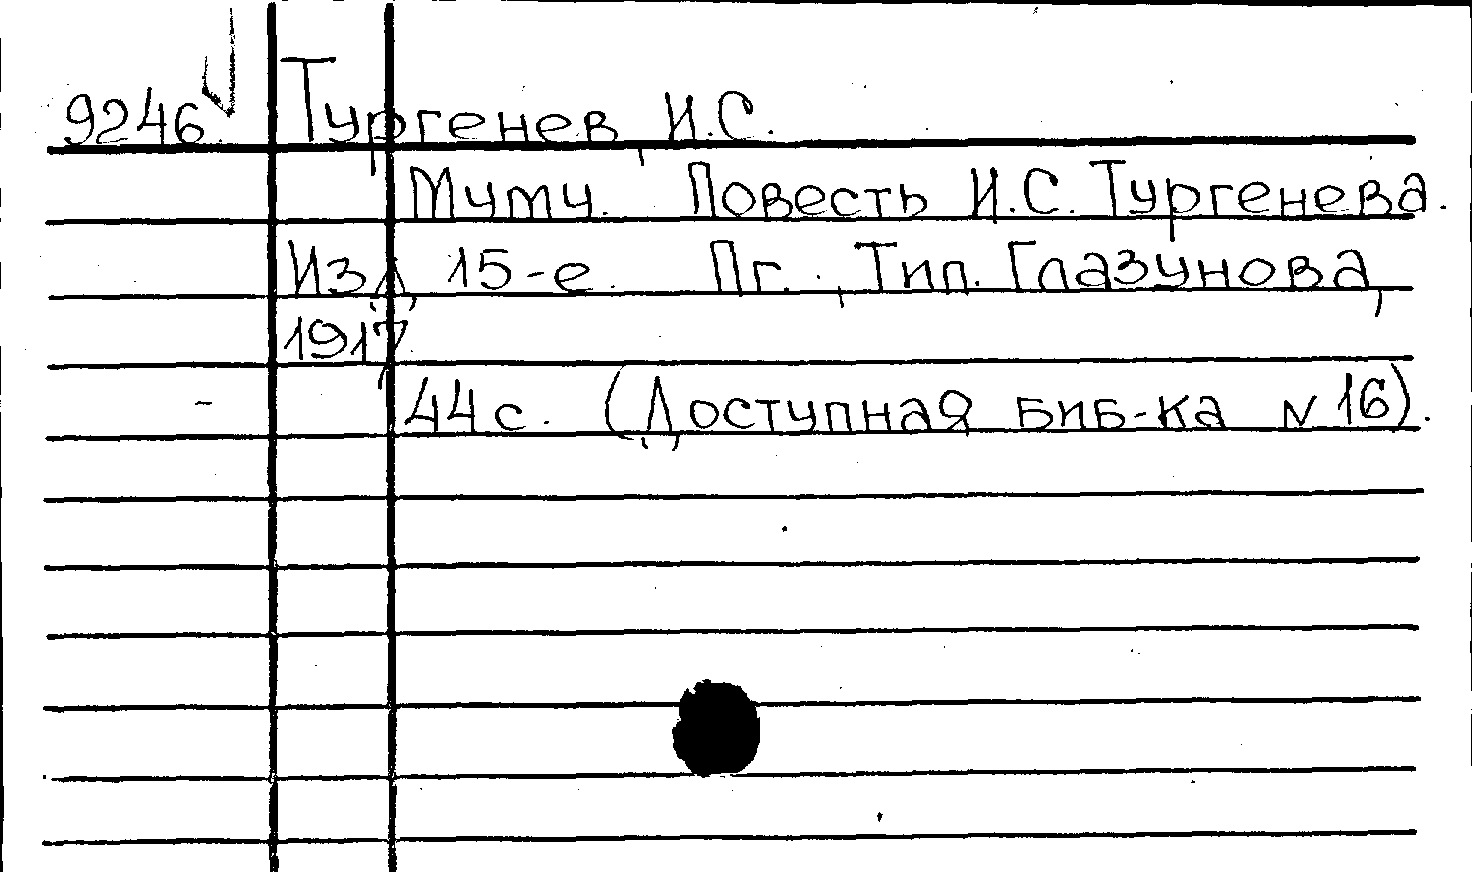 9246. Тургенев, И.С.
Муму. Повесть И.С. Тургенева.
Изд. 15-е. Пг., Тип. Глазунова,
1917,
44 с. (Доступная биб-ка № 16).